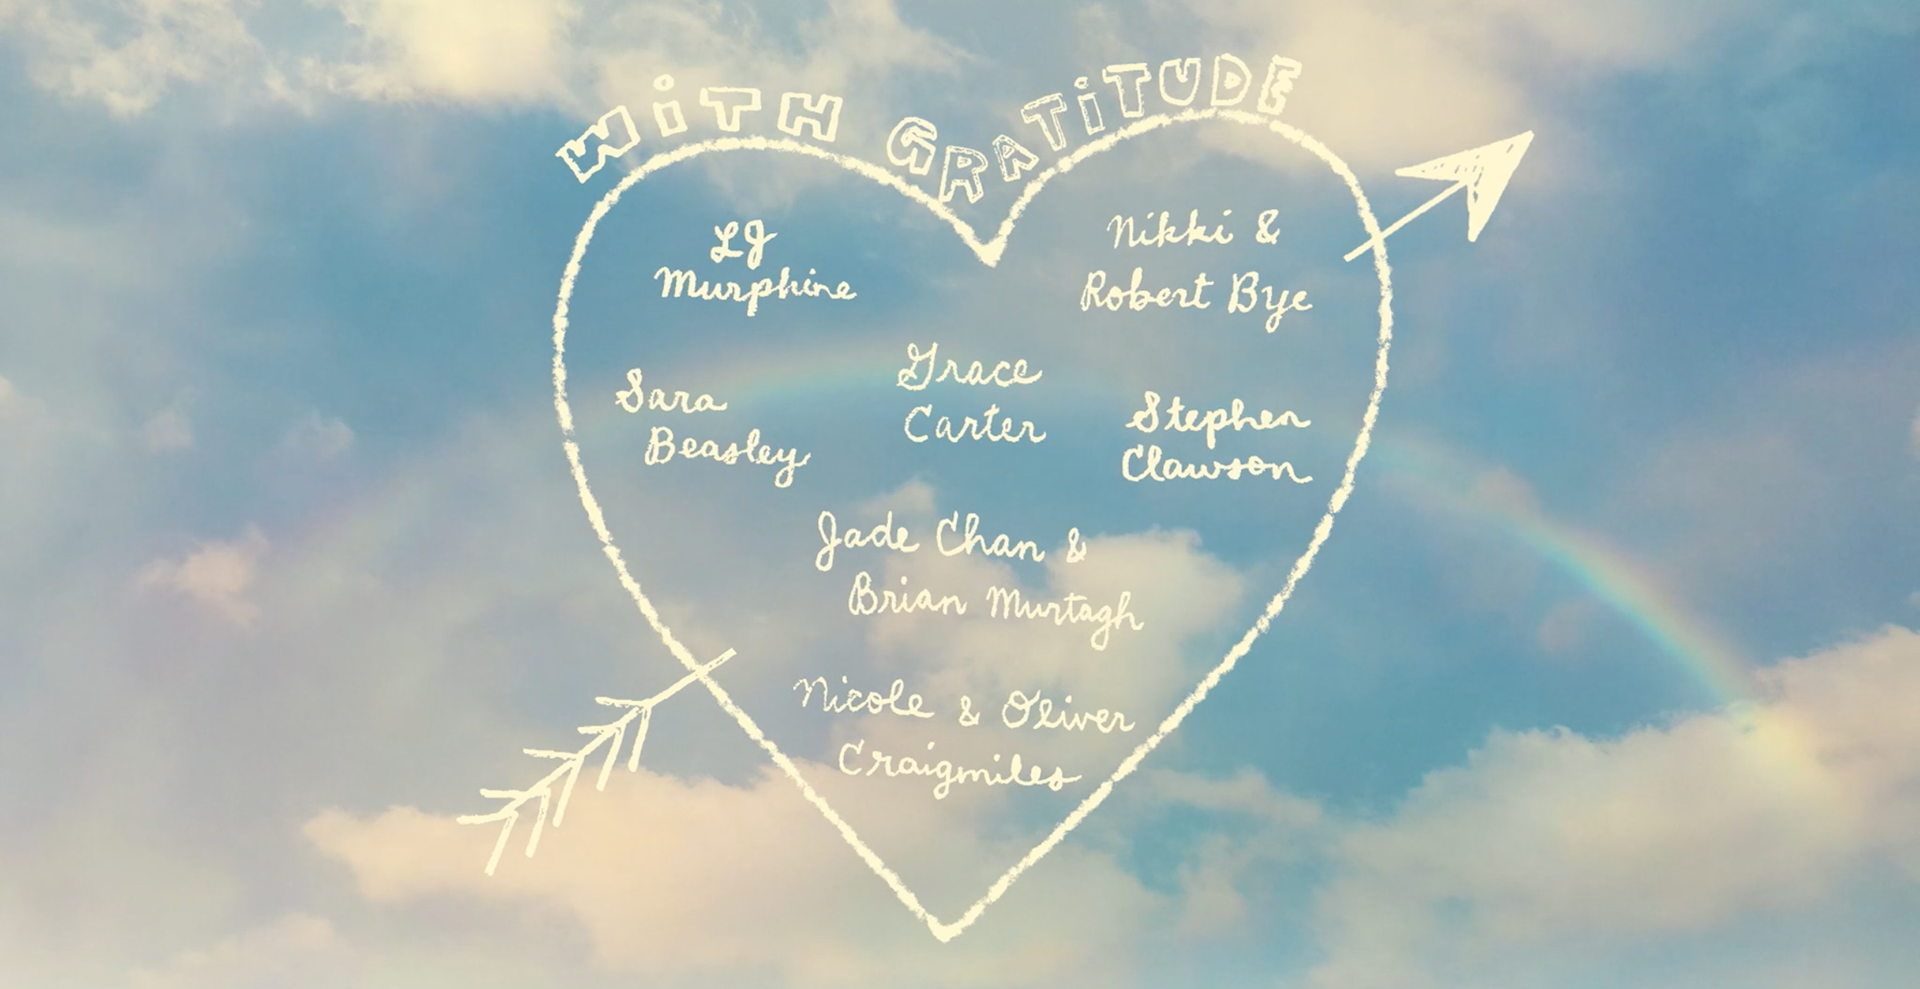 WiTH GRATiTUDE
LJ
Murphine
Nikki &
Robert Bye
Grace
Carter
Sara
Beasley
Stephen
Clawson
Jade Chan &
Brian Murtagh
Nicole & Oliver
Craigmiles